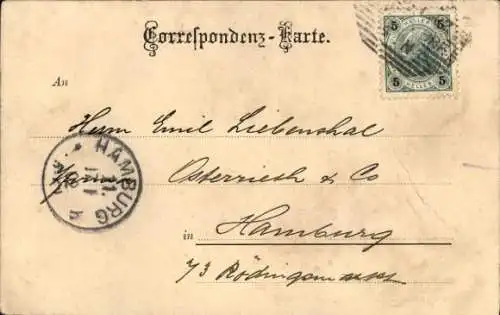 Correspondenz-Karte.
5 HELLER 5
An
Herrn Emil Liebenthal
HAMBURG
11.
Osterrieth & Co
in Hamburg
73 Rödingsmarkt